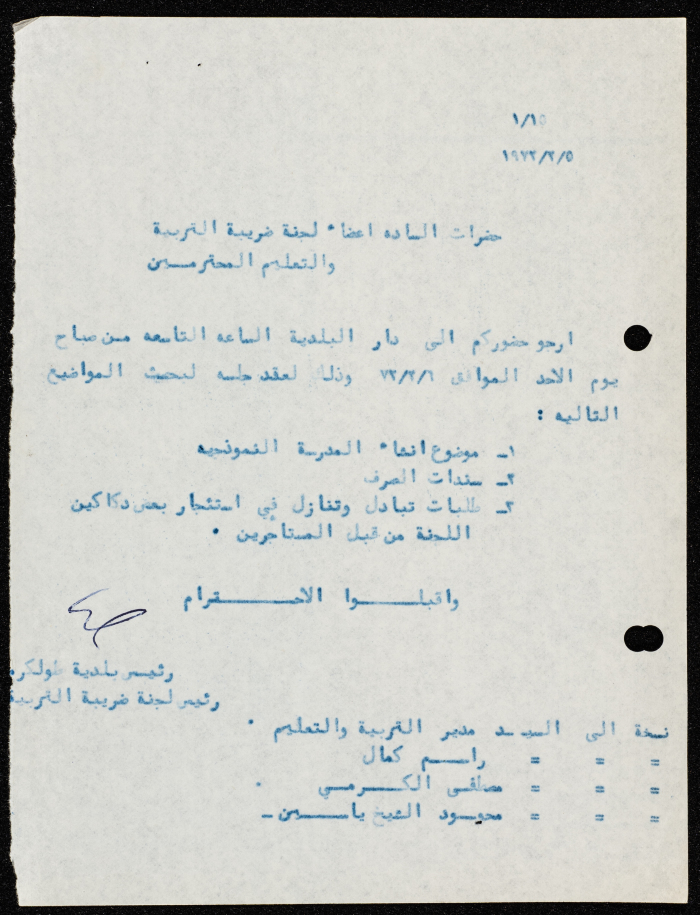 ١/١٥
١٩٧٢/٣/٥
حضرات الساده اعضاء لجنة ضريبة التربية
والتعليم المحترمـــين
ارجو حضوركم الى دار البلدية الساعه التاسعه من صباح
يوم الاحد الموافق ٧٢/٣/٦ وذلك لعقد جلسه لبحث المواضيع
التاليه :
١ـ موضوع انشاء المدرسة النموذجيه
٢ـ سندات الصرف
٣ـ طلبات تبادل وتنازل في استئجار بعض دكاكين
اللجنة من قبل المستاجرين .
واقبلـــــوا الاحـــــترام
رئيس بلدية طولكرم
رئيس لجنة ضريبة التربية
نسخة الى السيـد مدير التربية والتعليم .
= = = راســـم كمال
= = = مصطفـى الكـــرمـــي .
= = = محمـــود الشيخ ياســـين ـ